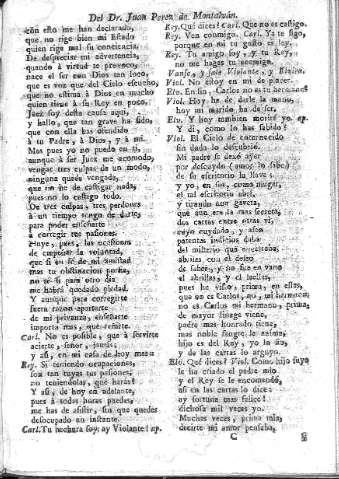 Del Dr. Juan Perez de Montalván.
con esto me han declarado,
que no rige bien mi Estado
quien rige mal su conciencia.
De despreciar mi advertencia,
quando à virtud te provoco,
nace el ser con Dios tan loco,
que es vos que del Cielo escucho,
que no estima à Dios en mucho
quien tiene à su Rey en poco.
Juez soy desta causa aqui,
y hallo, que tan grave ha sido,
que con ella has ofendido
à tu Padre, à Dios, y à mi.
Mas pues yo no puedo en ti,
aunque à ser Juez me acomodo,
vengar tres culpas de un modo,
ninguna quiere vengada,
que no he de castigar nada,
pues no lo castigo todo.
De tres culpas, tres perdones
à un tiempo tengo de darte,
para poder enseñarte
à corregir tus pasiones.
Huye, pues, las ocasiones
de la voluntad,
que si en fè de mi amistad
mas tu obstinacion porfia,
no sè si para otro dia
me habrà quedado piedad.
Y aunque para corregirte
fuera razon apartarte
de mi privanza, enseñarte
importa mas, que reñirte.
Carl. No es posible, que à servirte
acierte, señor, jamàs;
y asi, en mi casa de hoy mas
Rey. Si teniendo ocupaciones,
son tan tuyas tus pasiones,
no teniendolas, què haràs?
Y asi, de hoy en adelante,
pues à todas horas puedes,
me has de asistir, sin que quedes
desocupado un instante.
Carl. Tu hechura soy: ay Violante! ap.
Rey. Què dices? Carl. Que no es castigo.
Rey. Ven conmigo. Carl. Ya te sigo,
porque en mi tu gusto es ley.
Rey. Tu amigo soy, y tu Rey,
no me hagas tu enemigo.
Vanse, y sale Violante, y Elvira.
Viol. No estoy en mi de placer.
Elv. En fin, Carlos no es tu hermano?
Viol. Hoy he de darle la mano,
hoy mi marido ha de ser.
Elv. Y hoy tambien morirè yo. ap.
Y di, como lo has sabido?
Viol. El Cielo de enternecido
sin dada lo descubriò.
Mi padre se dexò ayer
por descuydo (amor lo sabe)
de su escritorio la llave;
y yo, en fin, como muger,
el tal escritorio abrì,
y tirando una gaveta,
que aun era la mas secreta,
dos cartas entre otras vi,
cuyo cuydado, y aseo
patentes indicios daba
del misterio que encerraba;
abrilas con el deseo
de saber, y no fue en vano
el abrillas, y el leellas,
pues he visto, prima, en ellas,
que no es Carlos, no, mi hermano,
no es Carlos mi hermano, prima,
de mayor linage viene,
padre mas honrado tiene,
mas noble sangre le anima,
hijo es del Rey, yo lo sè,
y de las cartas lo arguyo.
Elv. Què dices? Viol. Como hijo suyo
le ha criado el padre mio
y el Rey se le encomendò,
asi en las cartas lo dice:
ay fortuna mas felice!
dichosa mil veces yo.
Muchas veces, prima mia,
decirte mi amor pensaba,
C